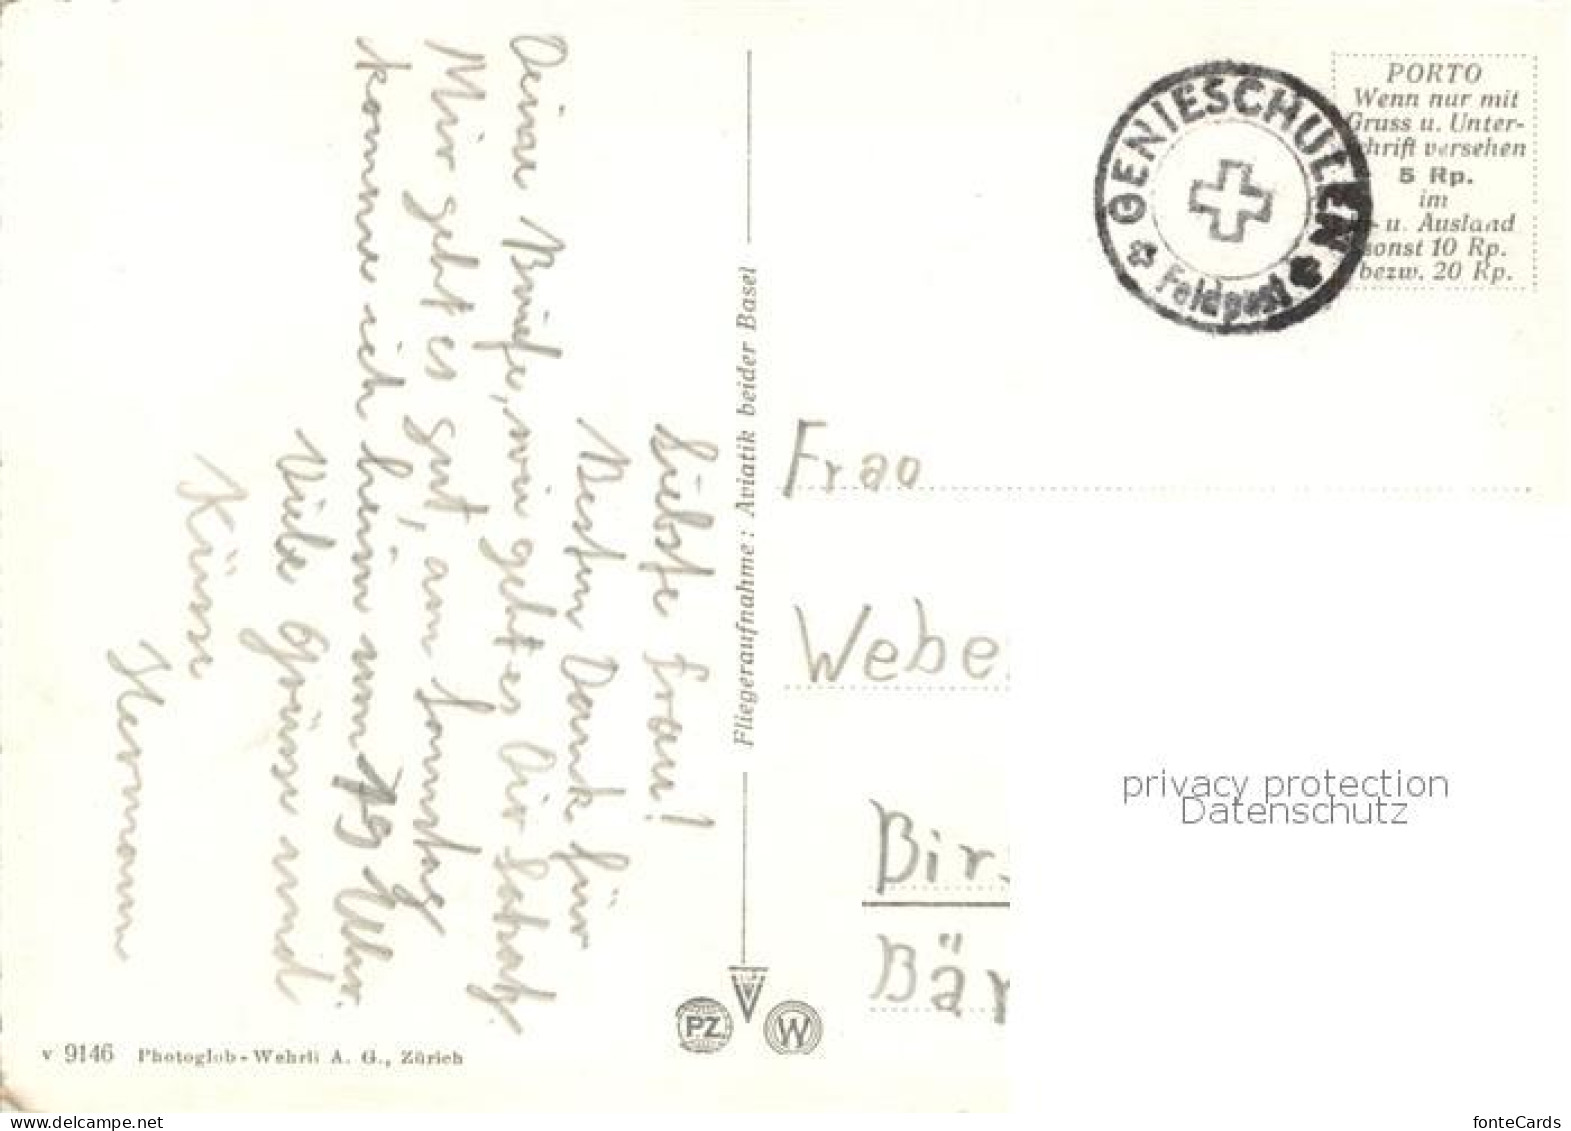 Liebste Frau!
Besten Dank für
Deine Briefe, wie geht es Dir Schatz.
Mir geht es gut, am Sonntag
komme ich heim um 19 Uhr.
Viele Grüsse und
Küsse
Hermann
v 9146 Photoglob-Wehrli A. G., Zürich
Fliegeraufnahme: Aviatik beider Basel
PZ
W
GENIESCHULEN
Feldpost
PORTO
Wenn nur mit
Gruss u. Unter-
schrift versehen
5 Rp.
im
- u. Ausland
sonst 10 Rp.
bezw. 20 Rp.
Frao
Webe
Bir.
Bär
privacy protection
Datenschutz
delcampe.net
fonteCards